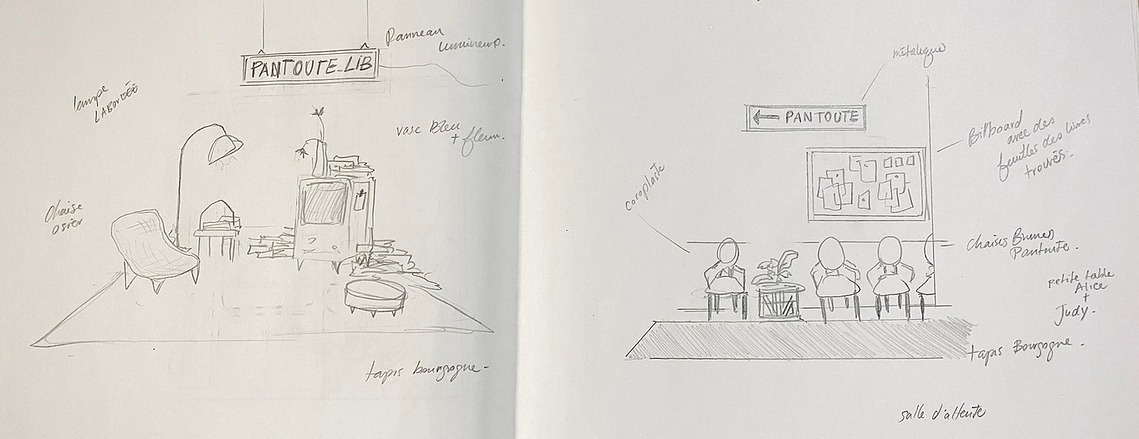 Panneau
lumineux.
PANTOUTE_LIB
lampe
vase Bleu
+ fleur.
chaise
osier
tapis bourgogne.
métalique
← PANTOUTE
Billboard
avec des
feuilles des livres
trouvés.
coroplaste
chaises Brunes
Pantoute.
petite table
Alice
+
Judy.
tapis Bourgogne.
salle d'attente